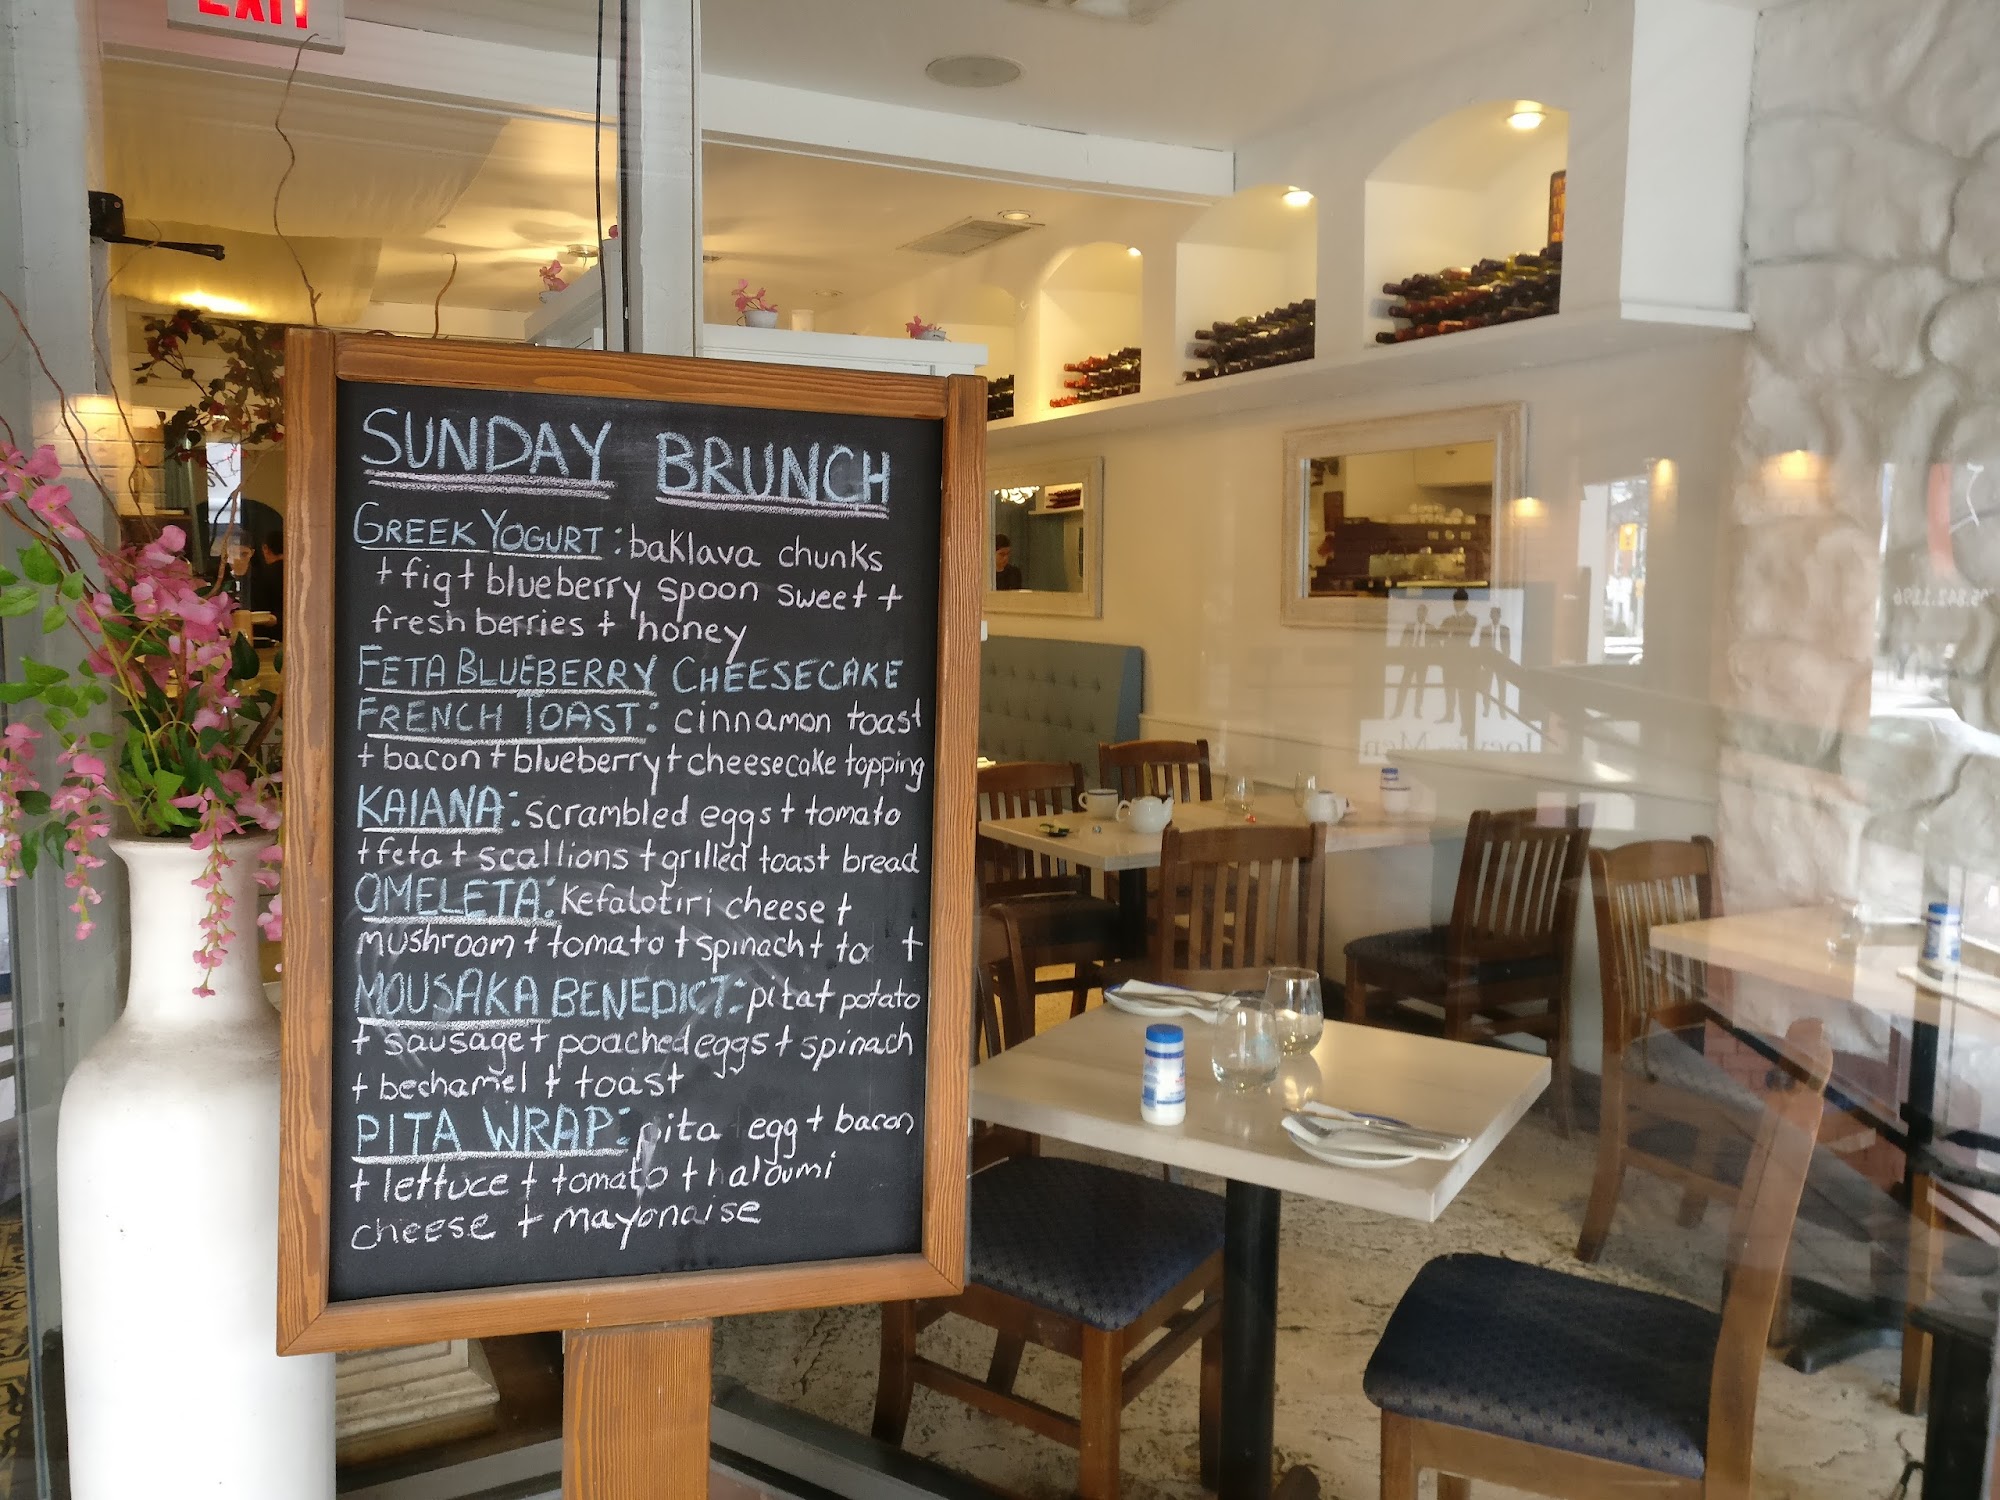 EXIT
SUNDAY BRUNCH
GREEK YOGURT: baklava chunks
+ fig + blueberry spoon sweet +
fresh berries + honey
FETA BLUEBERRY CHEESECAKE
FRENCH TOAST: cinnamon toast
+ bacon + blueberry + cheesecake topping
KAIANA: scrambled eggs + tomato
+ feta + scallions + grilled toast bread
OMELETA: Kefalotiri cheese +
mushroom + tomato + spinach + +
MOUSAKA BENEDICT: pita + potato
+ sausage + poached eggs + spinach
+ bechamel + toast
PITA WRAP: pita egg + bacon
+ lettuce + tomato + haloumi
cheese + mayonaise
Men